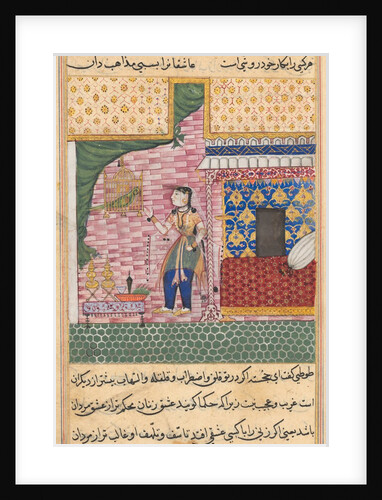 هر کسی را بکار خود است عاشقانرا بسی مذاهب دان
طوطی گفت ای خجسته اگر در تو قلق و اضطراب و قلقله و التهاب بیشتر از دیگران
است غریب و عجیب نیست زیرا که حکما گویند عشق زنان محکم تر از عشق مردان
باشد یعنی اگر زنی را با کسی عشقی افتد تاسف و تلهف او غالب تر از مردان